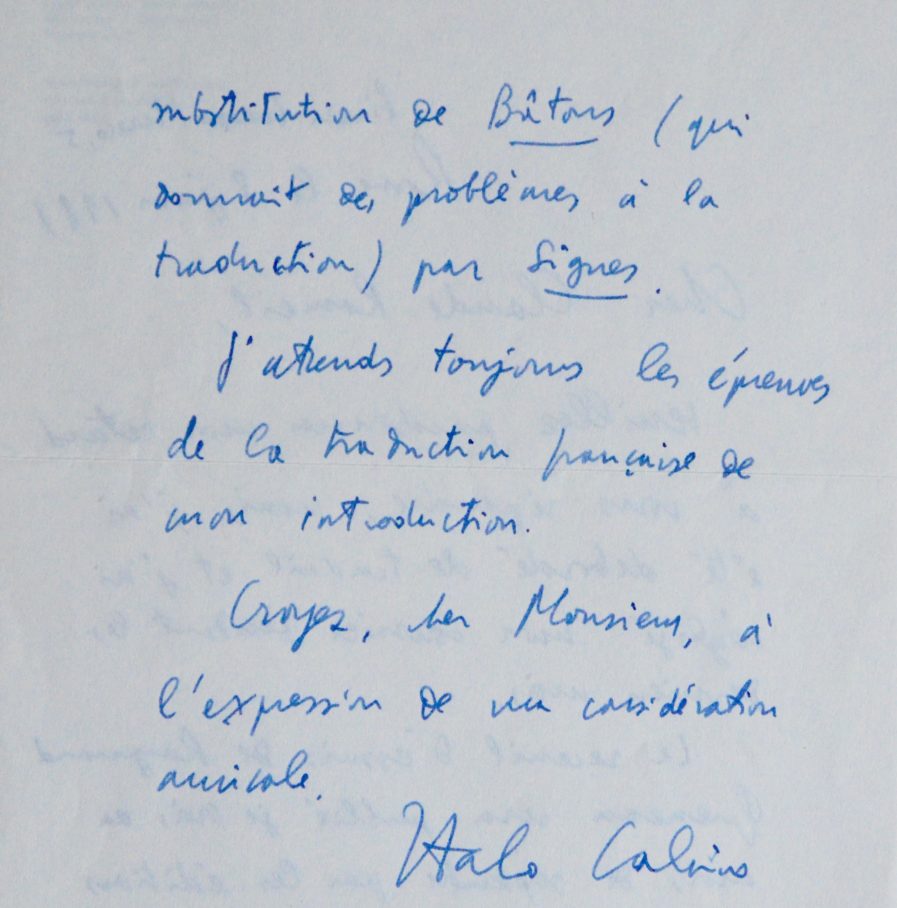 substitution de Bâtons (qui
donnait des problèmes à la
traduction) par Signes.
J'attends toujours les épreuves
de la traduction française de
mon introduction.
Croyez, cher Monsieur, à
l'expression de ma considération
amicale.
Italo Calvino